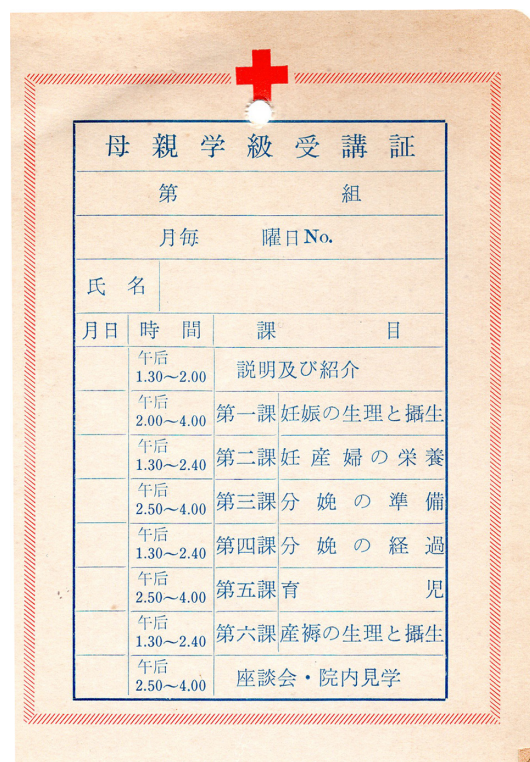 母親学級受講証
第 組
月毎 曜日No.
氏名
月日 時間 課目
午后 1.30〜2.00 説明及び紹介
午后 2.00〜4.00 第一課 妊娠の生理と攝生
午后 1.30〜2.40 第二課 妊産婦の栄養
午后 2.50〜4.00 第三課 分娩の準備
午后 1.30〜2.40 第四課 分娩の経過
午后 2.50〜4.00 第五課 育児
午后 1.30〜2.40 第六課 産褥の生理と攝生
午后 2.50〜4.00 座談会・院内見学